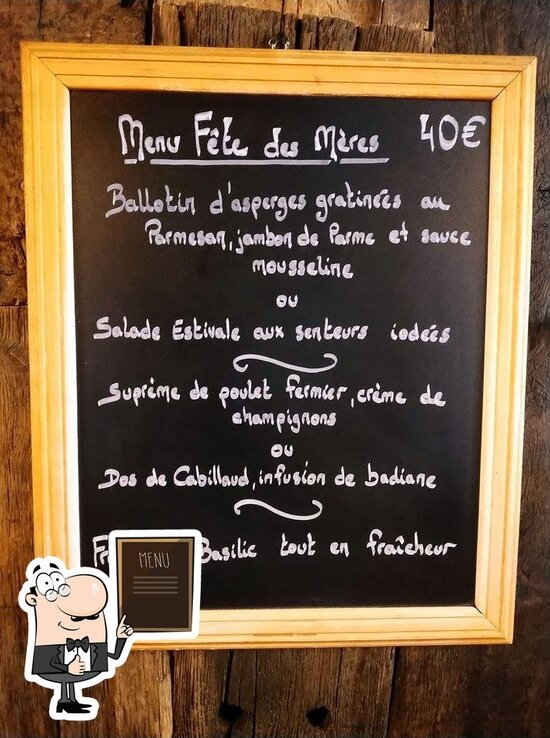 Menu Fête des Mères 40€
Ballotin d'asperges gratinées au
Parmesan, jambon de Parme et sauce
mousseline
ou
Salade Estivale aux senteurs iodées
Suprême de poulet fermier, crème de
champignons
ou
Dos de Cabillaud, infusion de badiane
Basilic tout en fraîcheur
MENU